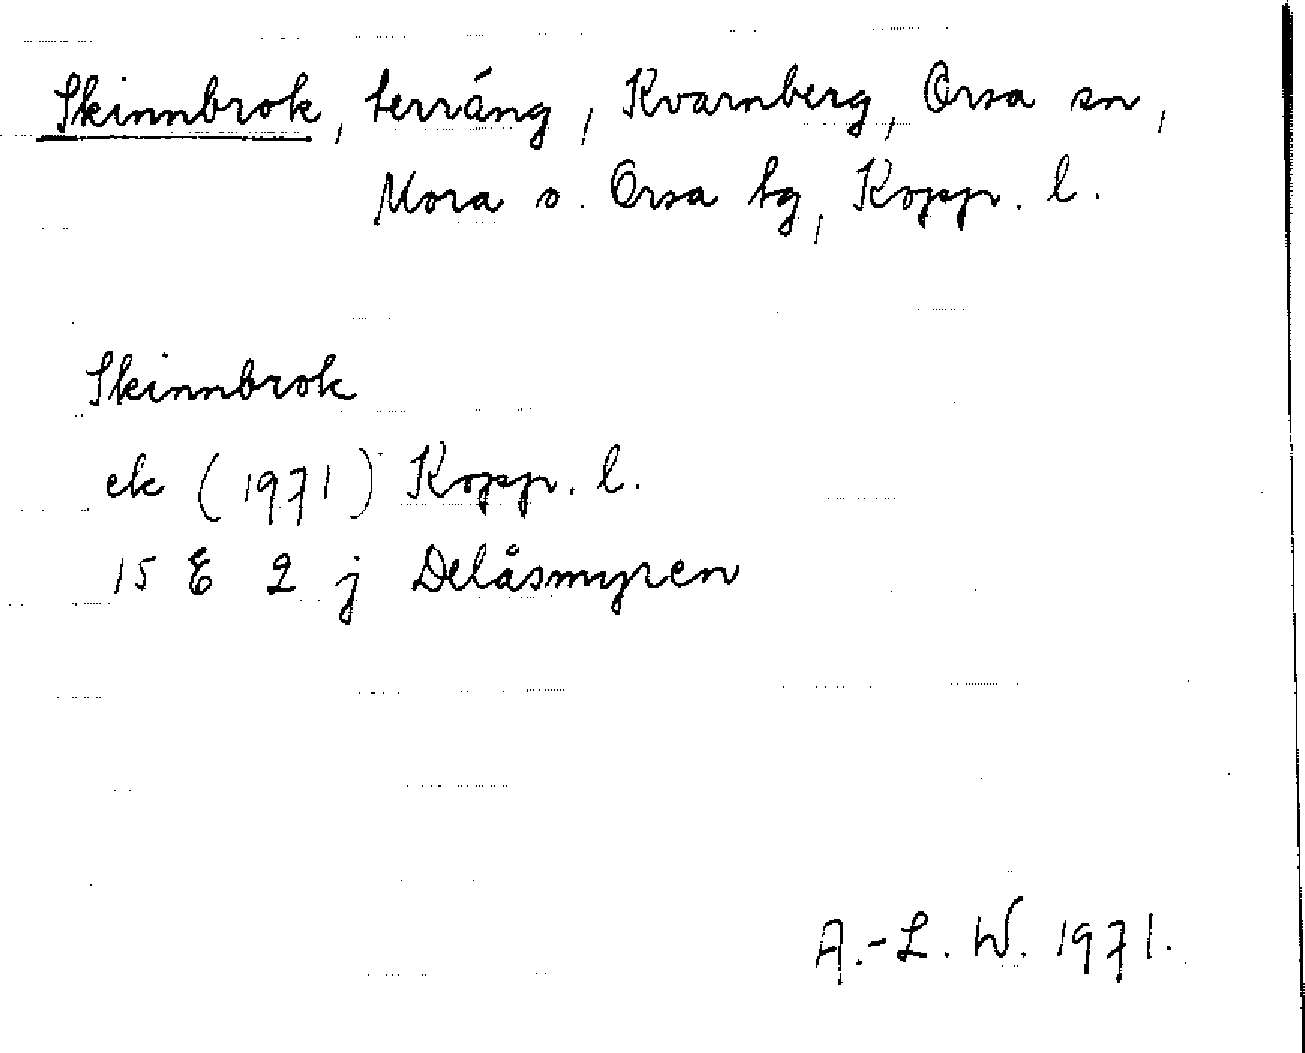 Skinnbrok, terräng, Kvarnberg, Orsa sn,
Mora o. Orsa tg, Kopp. l.
Skinnbrok
ek (1971) Kopp. l.
15 E 2 j Delåsmyren
A.-L. W. 1971.